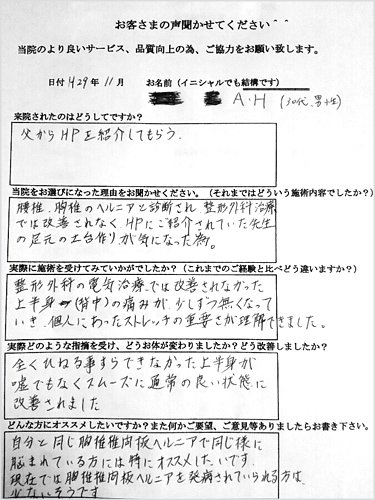 お客さまの声聞かせてください＾＾
当院のより良いサービス、品質向上の為、ご協力をお願い致します。
日付 H29年 11月 お名前（イニシャルでも結構です）
A・H （30代、男性）
来院されたのはどうしてですか？
父からHPを紹介してもらう．
当院をお選びになった理由をお聞かせください。（それまではどういう施術内容でしたか？）
腰椎、胸椎のヘルニアと診断され、整形外科治療
では改善されなく、HPにご紹介されていた先生
の足元の土台作りが気になった為。
実際に施術を受けてみていかがでしたか？（これまでのご経験と比べどう違いますか？）
整形外科の電気治療では改善されなかった
上半身（背中）の痛みが、少しずつ無くなって
いき、個人にあったストレッチの重要さが理解できました。
実際どのような指摘を受け、どうお体が変わりましたか？どう改善しましたか？
全くひねる事すらできなかった上半身が
嘘でもなくスムーズに通常の良い状態に
改善されました
どんな方にオススメしたいですか？また何かご要望、ご意見等ありましたらお書き下さい。
自分と同じ胸椎椎間板ヘルニアで同じ様に
悩まれている方には特にオススメしたいです．
現在では胸椎椎間板ヘルニアを発病されていられる方は、
少ないそうです